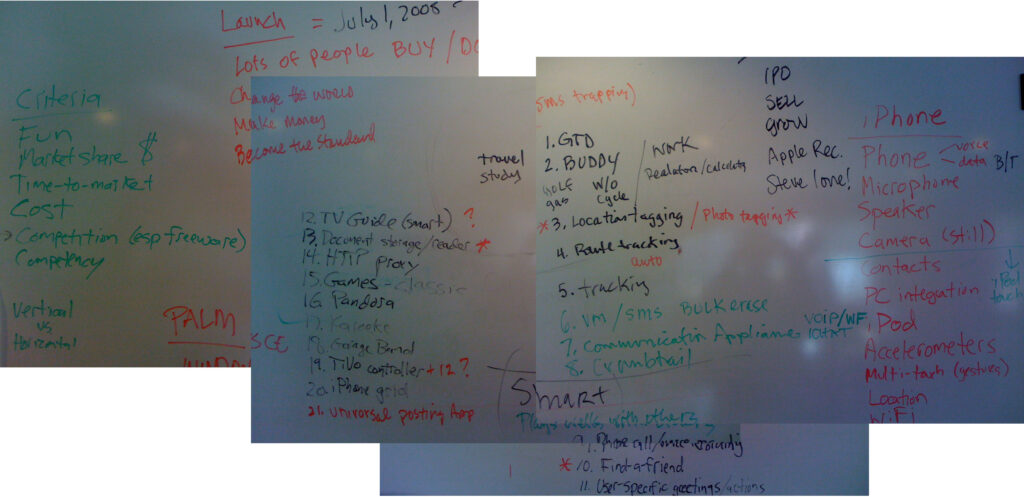 Launch = July 1, 2008
Lots of people BUY / DO
Change the world
Make money
Become the Standard
Criteria
Fun
Market share $
Time-to-market
Cost
> Competition (esp freeware)
Competency
Vertical
vs.
Horizontal
PALM
travel
study
12. TV Guide (smart) ?
13. Document storage/reader *
14. HTTP proxy
15. Games - classic
16. Pandora
17. Karaoke
18. Garage Band
19. TiVo controller + 12 ?
20. iPhone grid
21. Universal posting App
Smart
Plays well with others
9. Phone call/
* 10. Find-a-friend
11. User-specific greetings/actions
sms trapping)
1. GTD
2. BUDDY / Work
GOLF W/O Realators/calculator
gas cycle
* 3. Location tagging / Photo tagging *
4. Route tracking
auto
5. tracking
6. VM/SMS BULK erase
7. Communication Appliance VOIP/WF
ICHAT
8. Crumbtrail
IPO
SELL
grow
Apple Rec.
Steve love!
iPhone
Phone voice
data B/T
Microphone
Speaker
Camera (still)
Contacts
PC integration
iPod
touch
iPod
Accelerometers
Multi-touch (gestures)
Location
WiFi